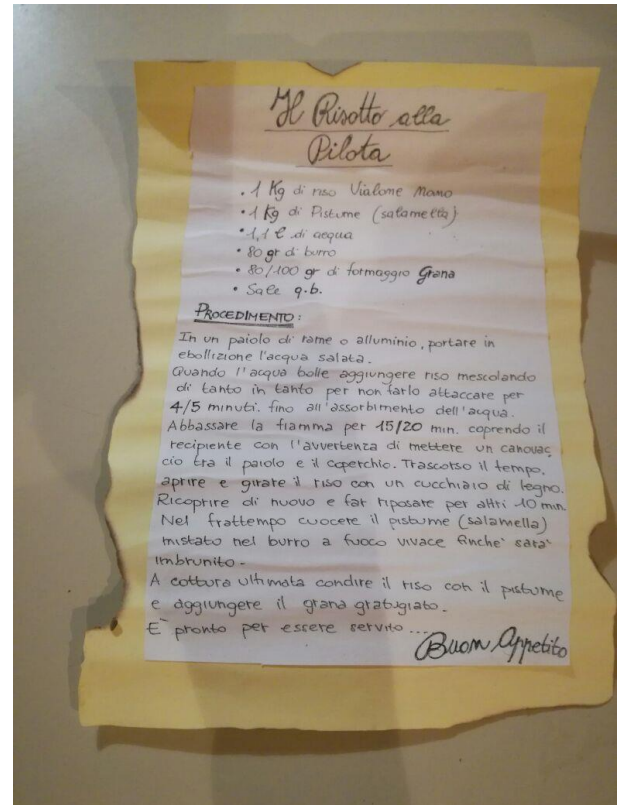 Il Risotto alla
Pilota
• 1 Kg di riso Vialone Nano
• 1 Kg di Pistume (salamella)
• 1,1 l di acqua
• 80 gr di burro
• 80/100 gr di formaggio Grana
• Sale q.b.
PROCEDIMENTO:
In un paiolo di rame o alluminio, portare in
ebollizione l'acqua salata.
Quando l'acqua bolle aggiungere riso mescolando
di tanto in tanto per non farlo attaccare per
4/5 minuti. fino all'assorbimento dell'acqua.
Abbassare la fiamma per 15/20 min. coprendo il
recipiente con l'avvertenza di mettere un canovac
cio tra il paiolo e il coperchio. Trascorso il tempo,
aprire e girate il riso con un cucchiaio di legno.
Ricoprire di nuovo e far riposare per altri 10 min
Nel frattempo cuocere il pistume (salamella)
mistato nel burro a fuoco vivace finche' sara'
imbrunito -
A cottura ultimata condire il riso con il pistume
e aggiungere il grana gratugiato.
E' pronto per essere servito...
Buon Appetito